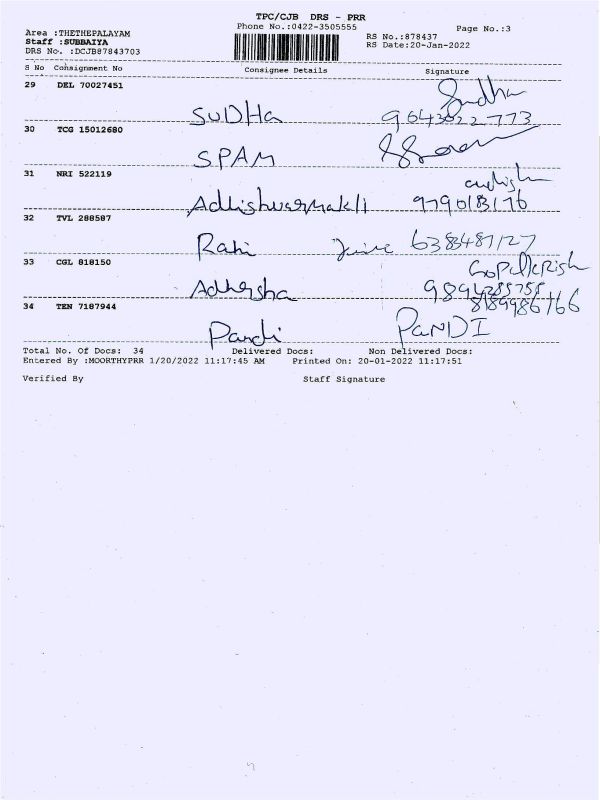 TPC/CJB DRS - PRR
Phone No.:0422-3505555
Page No.:3
Area :THETHEPALAYAM
Staff :SUBBAIYA
DRS No. :DCJB87843703
RS No.:878437
RS Date:20-Jan-2022
S No Consignment No Consignee Details Signature
29 DEL 70027451
SUDHa
Sudha
30 TCG 15012680
SPAM
31 NRI 522119
9790183176
32 TVL 288587
Rani
6383487127
33 CGL 818150
Adhersha
34 TEN 7187944
8189986766
Pandi PaNDI
Total No. Of Docs: 34 Delivered Docs: Non Delivered Docs:
Entered By :MOORTHYPRR 1/20/2022 11:17:45 AM Printed On: 20-01-2022 11:17:51
Verified By Staff Signature